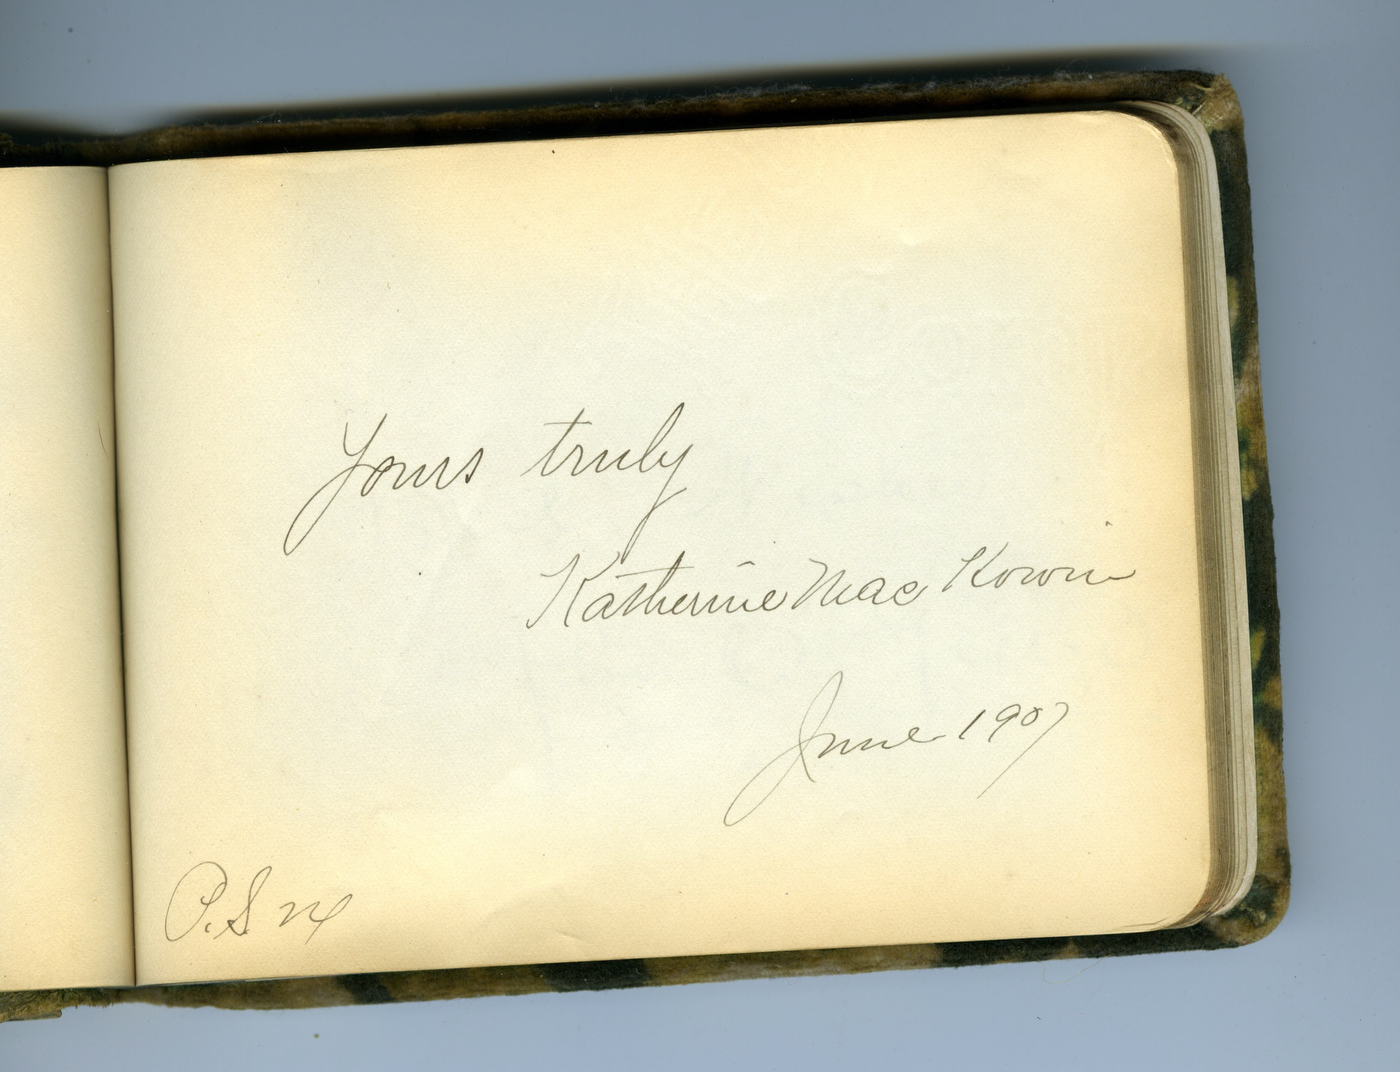 Yours truly
Katherine Mac Kown
June 1907
P.S.